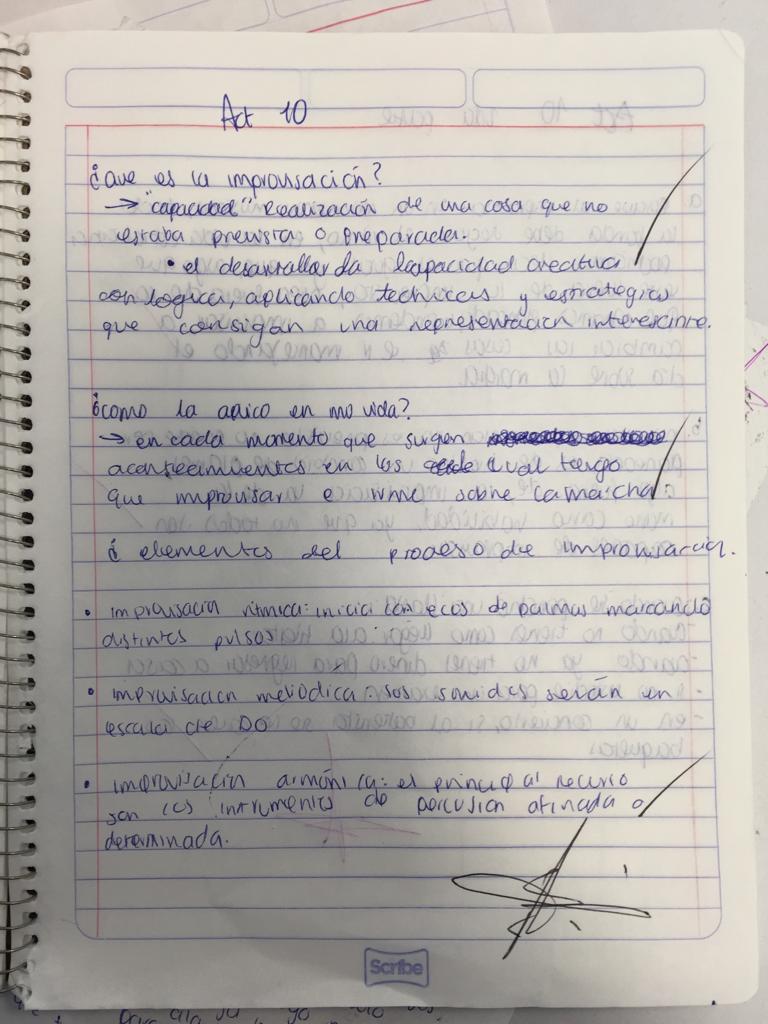 Act 10
¿Que es la improvisación?
→ "capacidad" Realización de una cosa que no
estaba prevista o preparada.
• el desarrollar la capacidad creativa
con logica, aplicando technicas y estrategias
que consigan una representación interesante.
¿como la apico en mo vida?
→ en cada momento que surgen
acontecimientos en los cual tengo
que improvisar e irme sobre la marcha.
¿ elementos del proceso de improvisación.
• improvisación ritmica: inicia con ecos de palmas marcando
distintos pulsos
• improvisación melodica: sos sonidos serán en
escala de DO
• improvisación armónica: el principal recurso
son los intrumentos de percusion afinada o
determinada.
Scribe